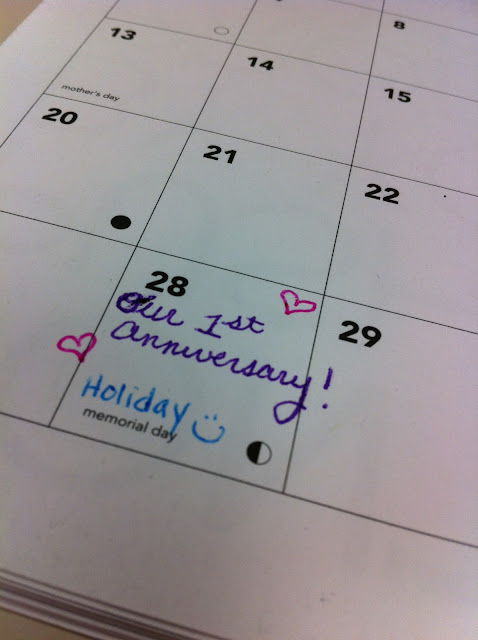 8
13
14
15
mother's day
20
21
22
28
29
Our 1st
anniversary!
Holiday
memorial day